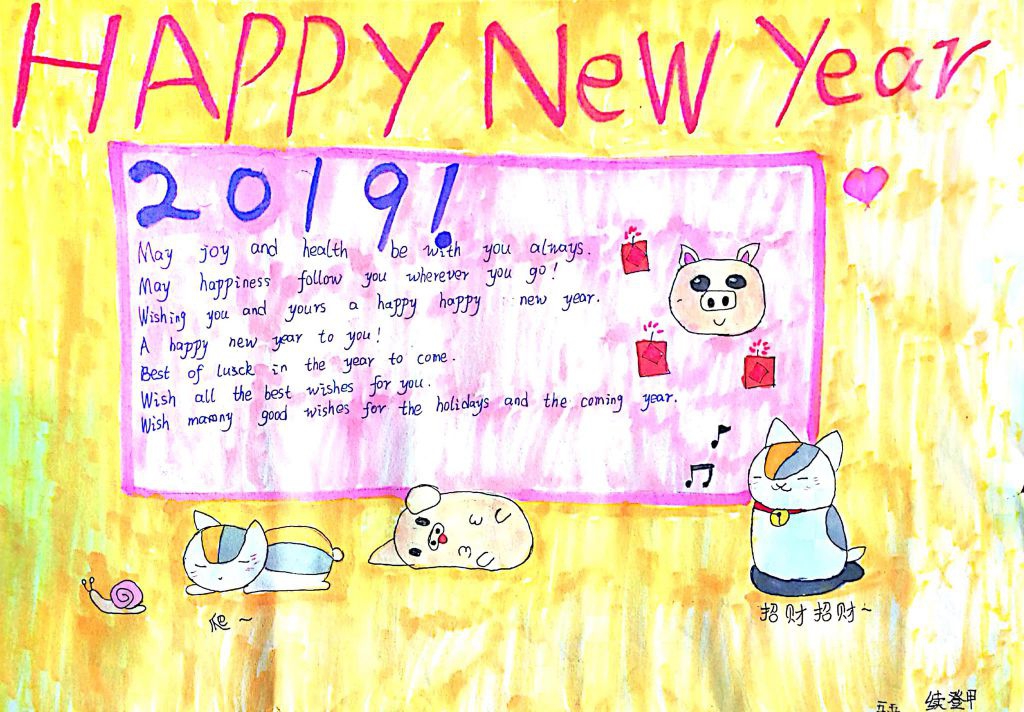 HAPPY New Year
2019!
May joy and health be with you always.
May happiness follow you wherever you go!
Wishing you and yours a happy happy new year.
A happy new year to you!
Best of lusck in the year to come.
Wish all the best wishes for you.
Wish manny good wishes for the holidays and the coming year.
爬~
招财招财~
续登甲